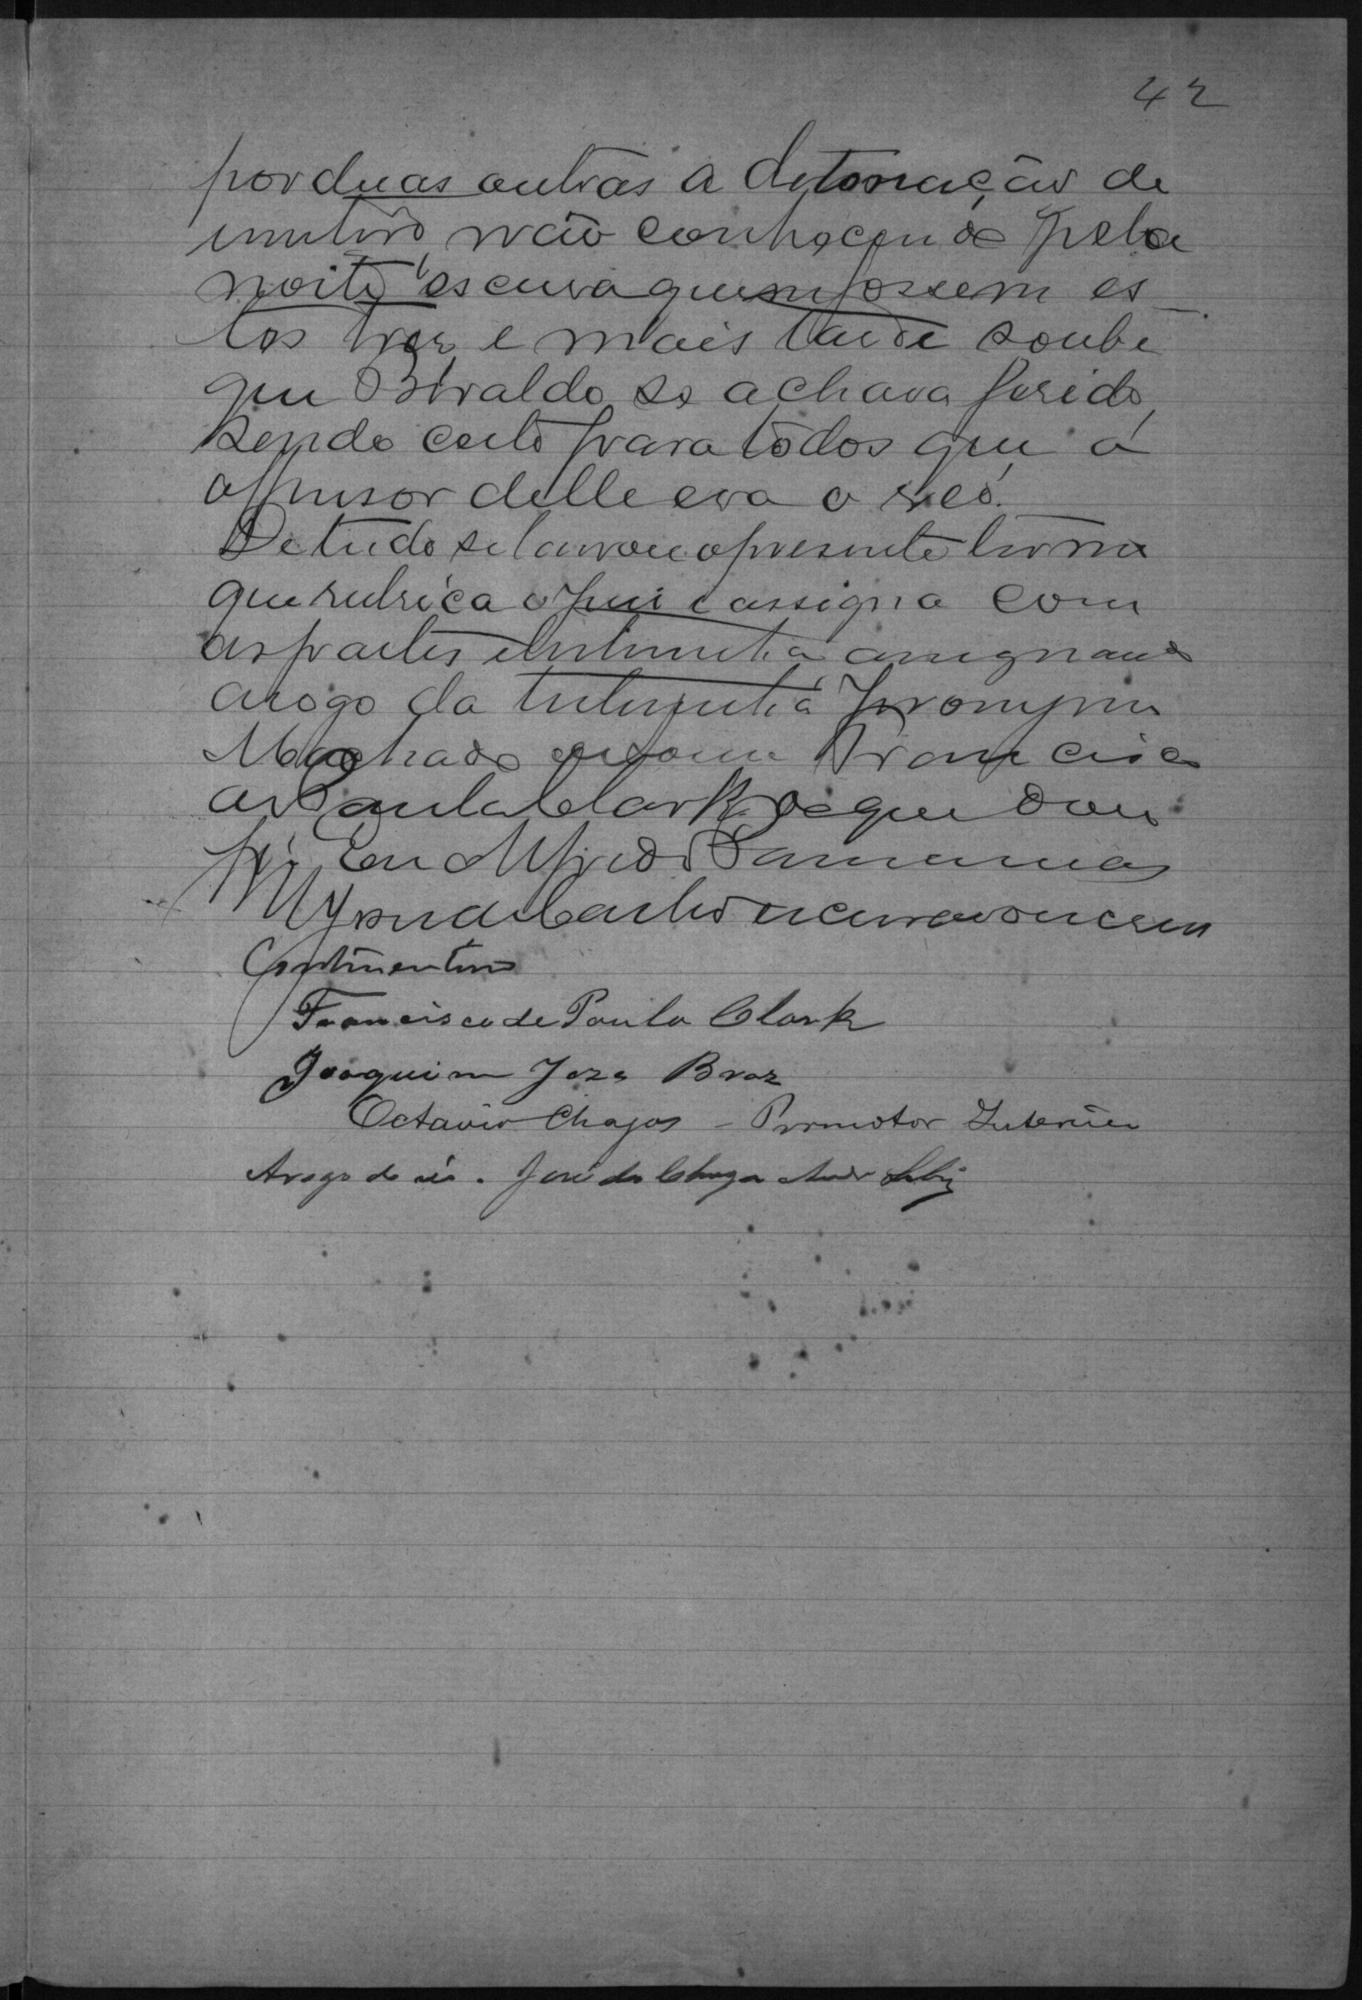 42
por duas outras a detonação de
um tiro não conhecendo pela
noite escura quem fossem es
tes trez e mais tarde soube
que Osvaldo se achava ferido,
sendo certo para todos que o
offensor delle era o reo.
De tudo se lavrou o presente termo
que rubrica o Juiz e assigna com
as partes e testimunha assignando
a rogo da testimunha Jeronymo
Machado Francisco
de Paula Clark, de que dou
fé. Eu Alfredo
de Castro escrivão escrevi
Francisco de Paula Clark
Joaquim Joze Braz
Octavio Chagas - Promotor Interino
A rogo do réo. José da